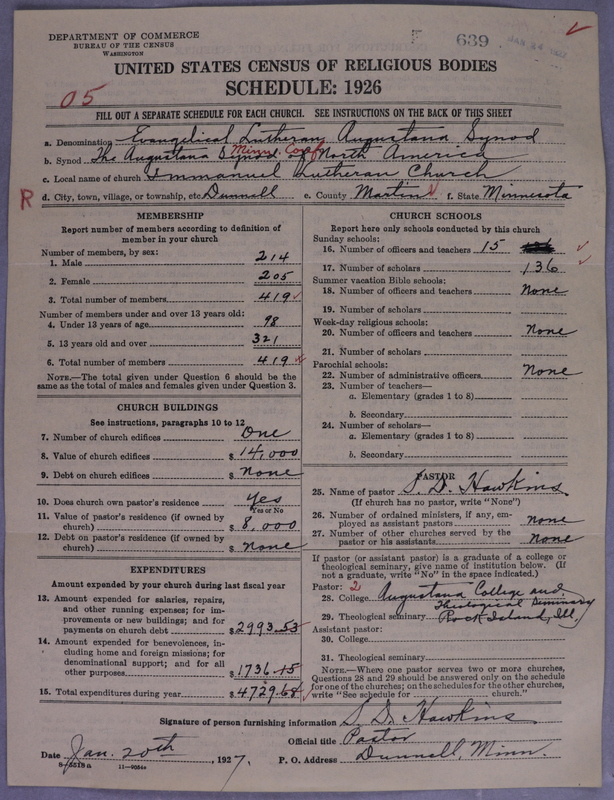 DEPARTMENT OF COMMERCE
BUREAU OF THE CENSUS
WASHINGTON
639
UNITED STATES CENSUS OF RELIGIOUS BODIES
SCHEDULE: 1926
05
FILL OUT A SEPARATE SCHEDULE FOR EACH CHURCH. SEE INSTRUCTIONS ON THE BACK OF THIS SHEET
a. Denomination Evangelical Lutheran Augustana Synod
Minn. Conf
b. Synod The Augustana Synod of North America
c. Local name of church Immanuel Lutheran Church
R d. City, town, village, or township, etc. Dunnell e. County Martin f. State Minnesota
MEMBERSHIP
Report number of members according to definition of
member in your church
Number of members, by sex:
1. Male 214
2. Female 205
3. Total number of members 419
Number of members under and over 13 years old:
4. Under 13 years of age 98
5. 13 years old and over 321
6. Total number of members 419
NOTE.—The total given under Question 6 should be the
same as the total of males and females given under Question 3.
CHURCH BUILDINGS
See instructions, paragraphs 10 to 12
7. Number of church edifices One
8. Value of church edifices $ 14,000
9. Debt on church edifices $ None
10. Does church own pastor's residence Yes
Yes or No
11. Value of pastor's residence (if owned by
church) $ 8,000
12. Debt on pastor's residence (if owned by
church) $ None
EXPENDITURES
Amount expended by your church during last fiscal year
13. Amount expended for salaries, repairs,
and other running expenses; for im-
provements or new building; and for
payments on church debt $ 2993.53
14. Amount expended for benevolences, in-
cluding home and foreign missions; for
denominational support; and for all
other purposes $ 1736.15
15. Total expenditures during year $ 4729.68
CHURCH SCHOOLS
Report here only schools conducted by this church
Sunday schools:
16. Number of officers and teachers 15
17. Number of scholars 136
Summer vacation Bible schools:
18. Number of officers and teachers None
19. Number of scholars
Week-day religious schools:
20. Number of officers and teachers None
21. Number of scholars
Parochial schools:
22. Number of administrative officers None
23. Number of teachers—
a. Elementary (grades 1 to 8)
b. Secondary
24. Number of scholars—
a. Elementary (grades 1 to 8)
b. Secondary
PASTOR
25. Name of pastor S. D. Hawkins
(If church has no pastor, write "None")
26. Number of ordained ministers, if any, em-
ployed as assistant pastors none
27. Number of other churches served by the
pastor or his assistants None
If pastor (or assistant pastor) is a graduate of a college or
theological seminary, give name of institution below. (If
not a graduate, write "No" in the space indicated.)
Pastor: 2
28. College Augustana College and
Theological Seminary
29. Theological seminary Rock Island, Ill.
Assistant pastor:
30. College
31. Theological seminary
NOTE.—Where one pastor serves two or more churches,
Questions 28 and 29 should be answered only on the schedule
for one of the churches; on the schedules for the other churches,
write "See schedule for church."
Signature of person furnishing information S. D. Hawkins
Official title Pastor
Date Jan. 20th, 1927. P. O. Address Dunnell, Minn.